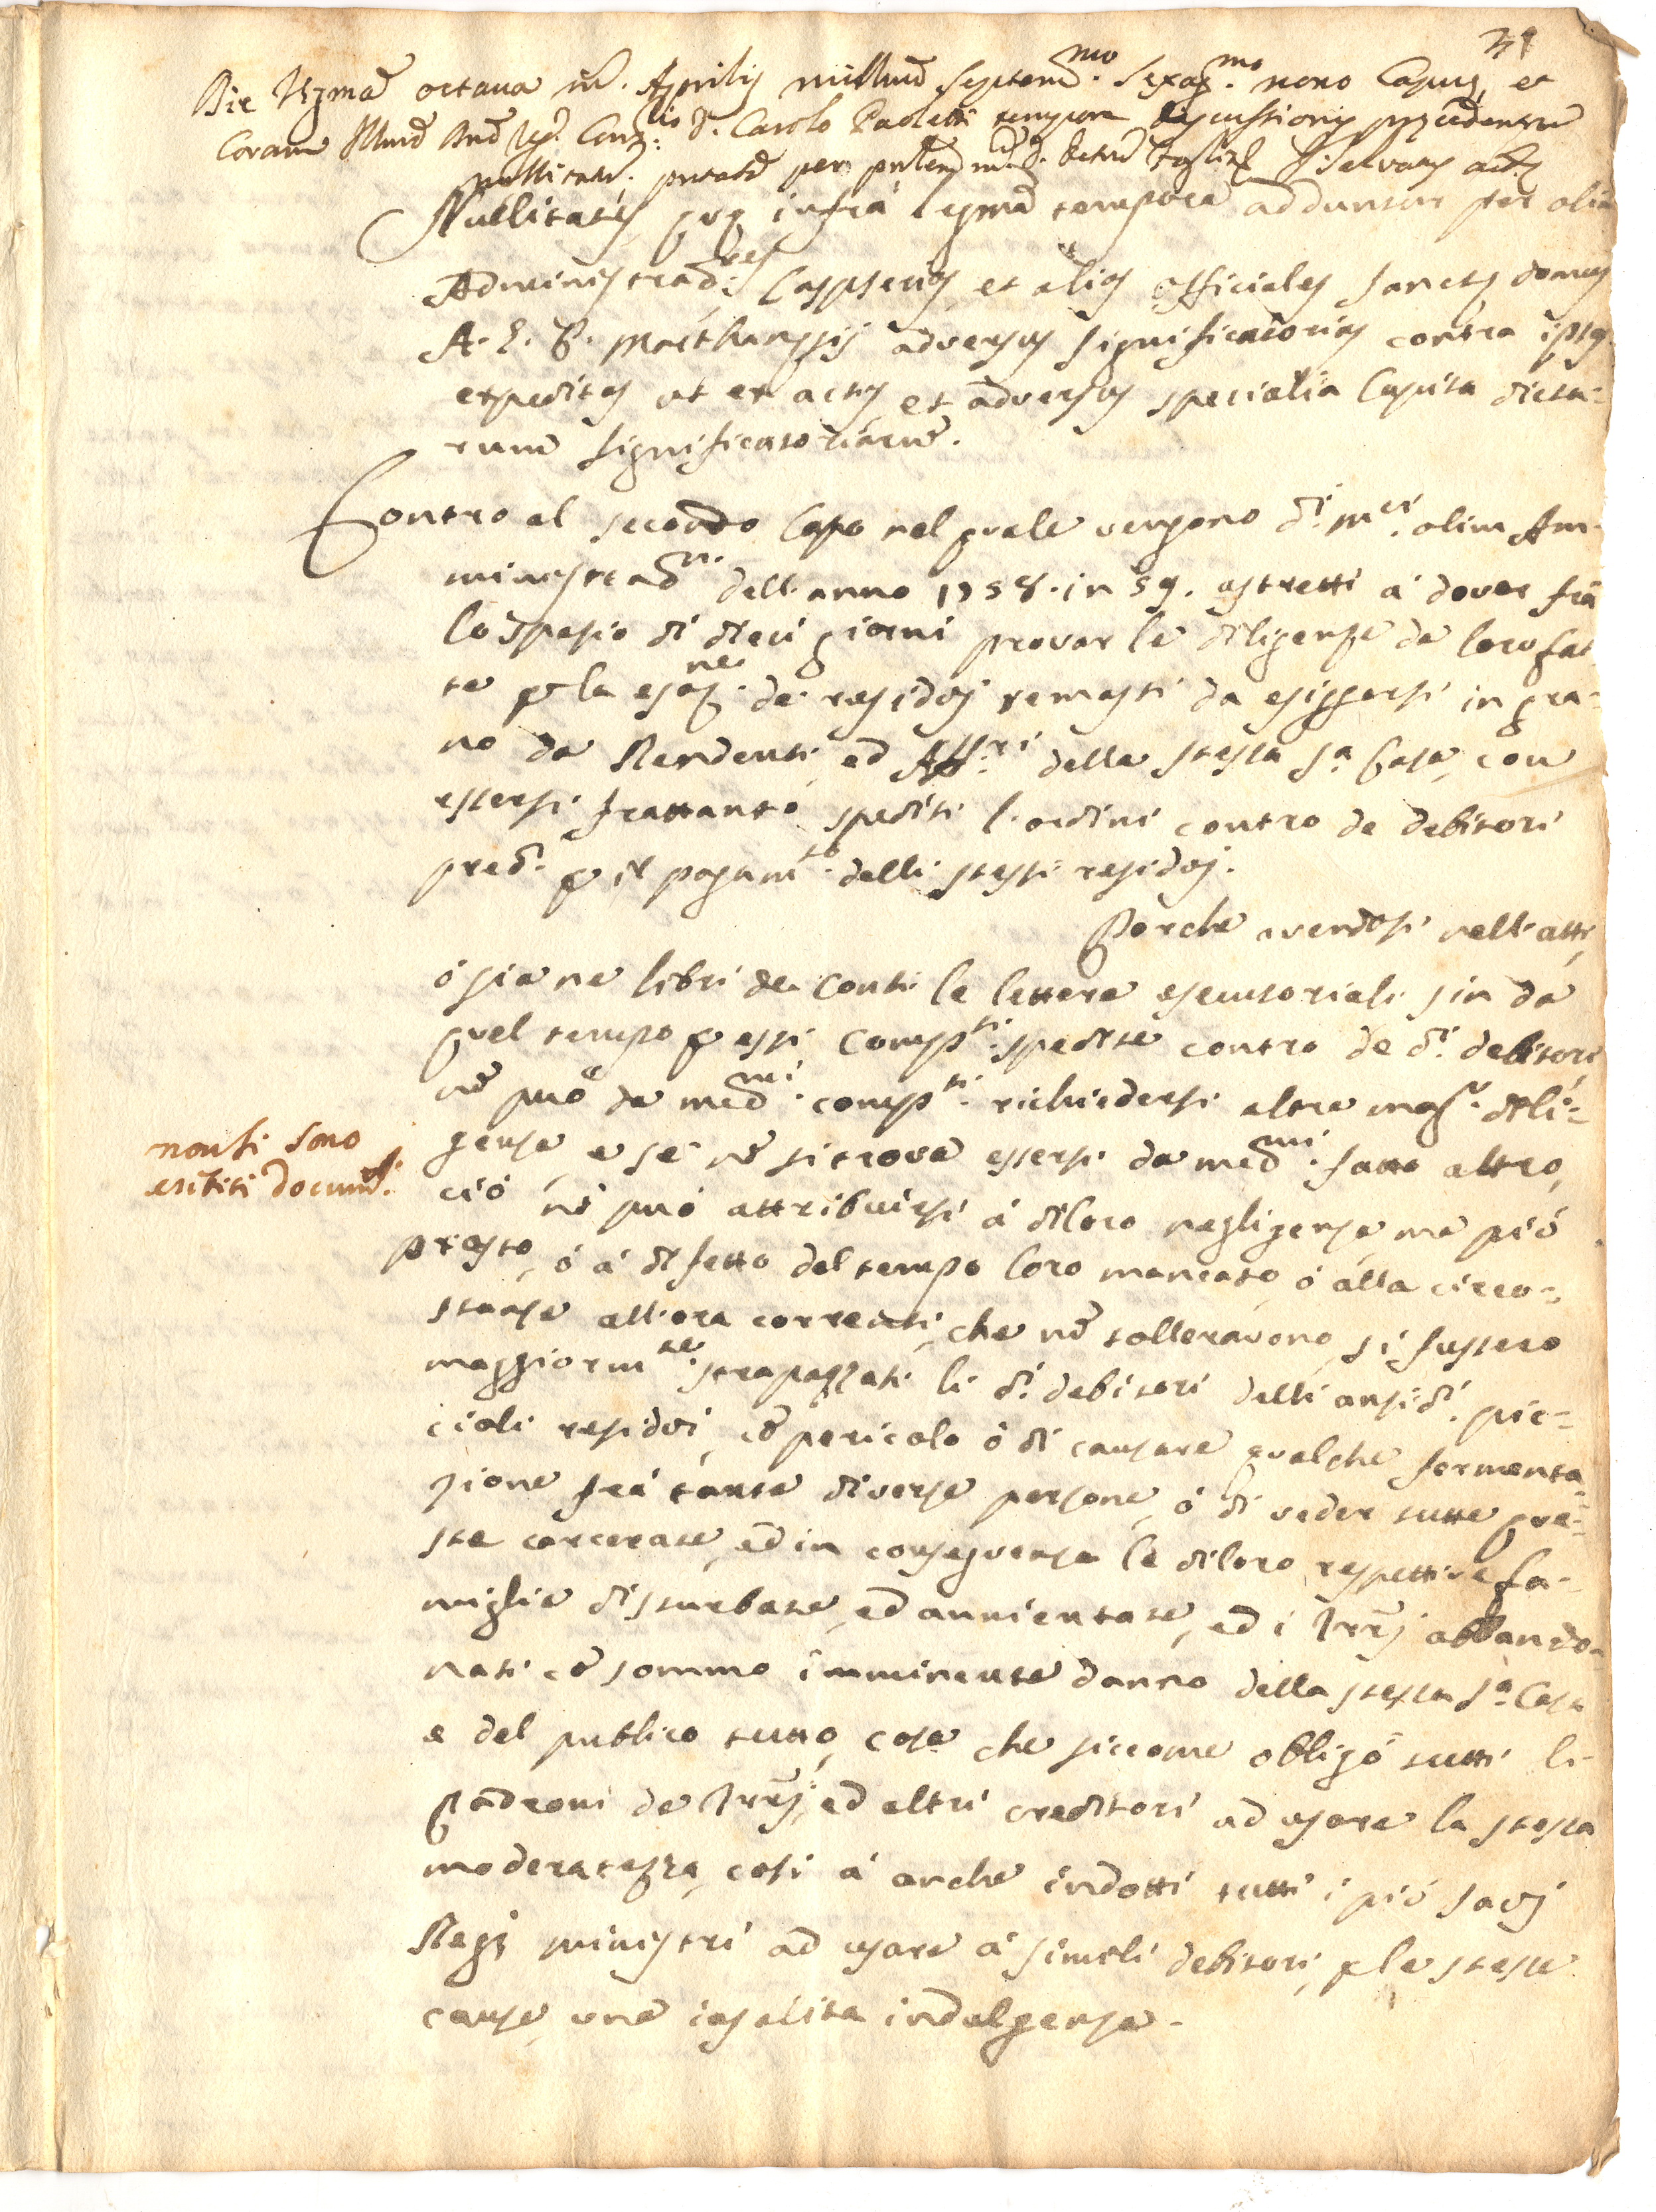 39
Die Vig.ma octava m. Aprilis mill.mo septem.mo sexag.mo nono Capuæ, et
Coram Ill.mo D. Carolo Paoletti tempore discussionis præsentetur
nullitatum
Nullitates quæ infra leg.mo tempore adduntur per olim
Administrad.res Cappsenios et alios officiales sanctæ domus
A. G. P. Marthanesij adversus significatorias contra ipsos
expeditas ut ex actis, et adversus specialia Capita dicta-
rum significatoriarum.
Contro al secondo Capo nel quale vengono d.i m.ci olim Am-
ministrad.ri dell'anno 1758. in 59. astretti á dover frà
lo spasio di dieci giorni provar le diligenze da loro fat
te p la esaz.ne de residoj remasti da esiggersi in gra-
no da Rendenti, ed Aff.ri della stessa S.a Casa, con
essersi frattanto spediti l'ordini contro de debitori
pred.i p il pagam.to delli stessi residoj.
Perche avendosi nell'atti,
ó sia ne libri de Conti le lettere esecutoriali sin da
quel tempo p essi Comp.ti spedite contro de d.i debitori
nõ può da med.mi comp.ti richiedersi altra mag.r dili-
genza, e se nõ si trova essersi da med.mi fatto altro,
ció nõ puó attribuirsi á diloro negligenza, ma pió
presto, ó á difetto del tempo loro mancato, ó alla circo-
stanze all'ora correnti, che nõ tolleravono, si fussero
maggiorm.te strapazzati li d.i debitori delli ansid.i pic-
cioli residoi, cõ pericolo ó di causare qualche fermenta-
zione frá tante diverse persone, ó di veder tutte que-
ste carcerate, ed in conseguenza le diloro respettive fa-
miglie disturbate, ed annientate, ed i Terrj abbando-
nati cõ sommo imminente danno della stessa S.a Casa
e del publico tutto, cosa che siccome obligó tutti li
Padroni de Terrj, ed altri creditori ad usare la stessa
moderatezza, cosi á anche indotti tutti i piú savj
Regj ministri ad usare á simili debitori, p le stesse
cause, una insolita indulgenza.
non si sono
esibiti docum.ti